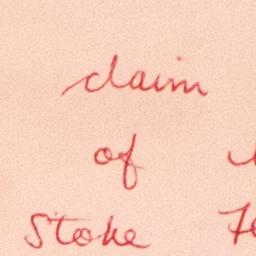 claim
of
Stoke